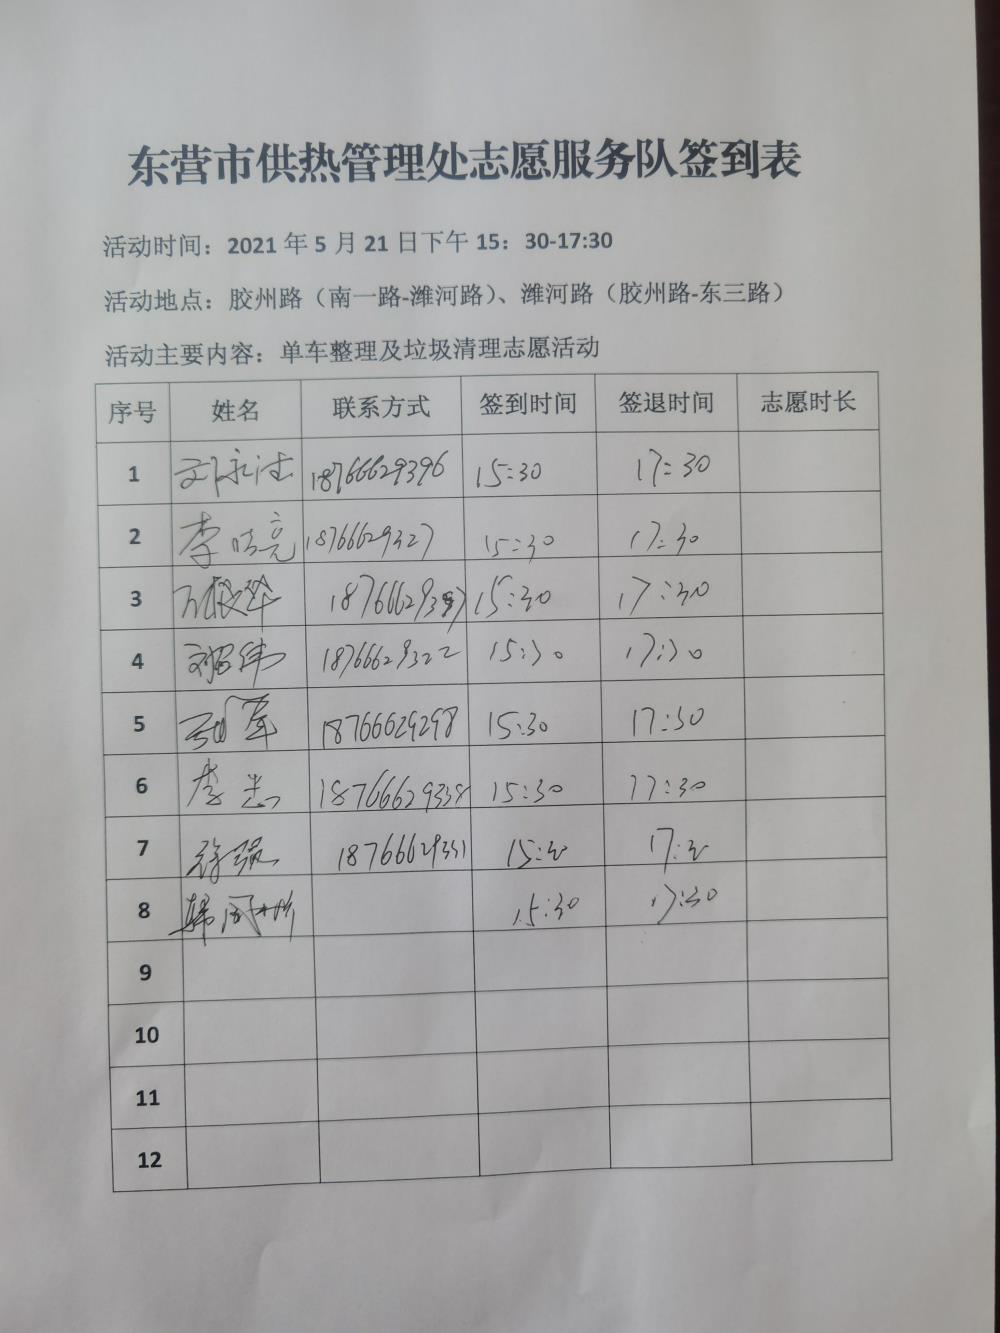 东营市供热管理处志愿服务队签到表
活动时间：2021 年 5 月 21 日下午 15：30-17:30
活动地点：胶州路（南一路-潍河路）、潍河路（胶州路-东三路）
活动主要内容：单车整理及垃圾清理志愿活动
序号 姓名 联系方式 签到时间 签退时间 志愿时长
1 18766629396 15:30 17:30
2 李晓亮 18766629327 15:30 17:30
3 15:30 17:30
4 18766629322 15:30 17:30
5 18766629298 15:30 17:30
6 李志 18766629338 15:30 17:30
7 徐强 18766629331
8 15:30 17:30
9
10
11
12